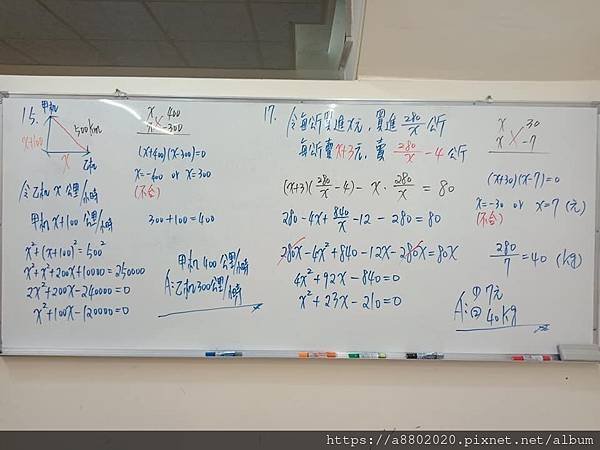 15.
甲机
500km
x+100
x
乙机
令乙机 x 公里/小時
甲机 x+100 公里/小時
x²+(x+100)²=500²
x²+x²+200x+10000=250000
2x²+200x-240000=0
x²+100x-120000=0
x 400
x -300
(x+400)(x-300)=0
x=-400 or x=300
(不合)
300+100=400
甲机 400公里/小時
A:乙机300公里/小時
17.
令每公斤買進x元,買進 280/x 公斤
每公斤賣x+3元,賣 280/x -4 公斤
(x+3)(280/x -4)- x·280/x = 80
280-4x+840/x-12-280=80
280x-4x²+840-12x-280x=80x
4x²+92x-840=0
x²+23x-210=0
x 30
x -7
(x+30)(x-7)=0
x=-30 or x=7 (元)
(不合)
280/7=40 (kg)
A:①7元
②40kg
https://a8802020.pixnet.net/album